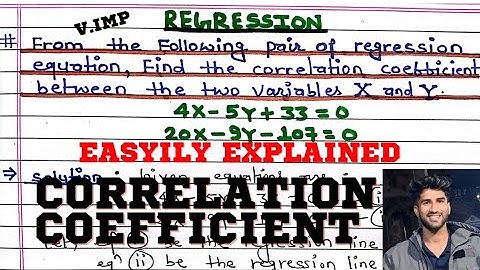 V.IMP
REGRESSION
# From the Following pair of regression
equation, Find the correlation coefficient
between the two variables X and Y.
4X-5Y+33=0
20X-9Y-107=0
EASYILY EXPLAINED
→ Solution Given equations are
CORRELATION
COEFFICIENT
eqⁿ be the regression line
eqⁿ (ii) be the regression line